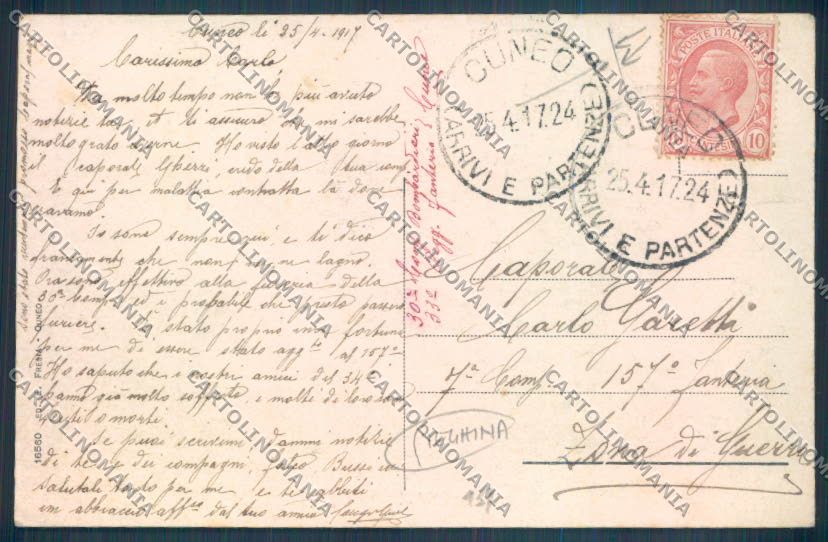 Cuneo li 25/4-1917
Carissimo Carlo,
Da molto tempo non ò più avuto
notizie tue. E ti assicuro che mi sarebbe
molto grato averne. Ho visto l'altro giorno
il caporale credo della tua comp.
È qui per malattia contratta là dove
eravamo.
Io sono sempre qui e ti dico
francamente che non me ne lagno.
Ora sono effettivo alla fureria della
30ª Comp. ed è probabile che presto passerò
furiere. È stato proprio una fortuna
per me di essere stato agg.to al 157º
Ho saputo che i nostri amici del 34
hanno già molto sofferto e molti di loro son
feriti o morti.
Se puoi scrivermi, dammi notizie
di te e dei compagni,
salutali tanto per me e ti abbiti
un abbraccio aff.so dal tuo amico
30ª Comp. Bombardieri Cuneo
33º Regg. Fanteria
CUNEO
25.4.17.24
(ARRIVI E PARTENZE)
CUNEO
25.4.17.24
(ARRIVI E PARTENZE)
POSTE ITALIANE
10
Caporale
Carlo Garetti
7ª Comp. 157º Fanteria
Zona di Guerra
16560 ED. FRESIA - CUNEO
CARTOLINOMANIA